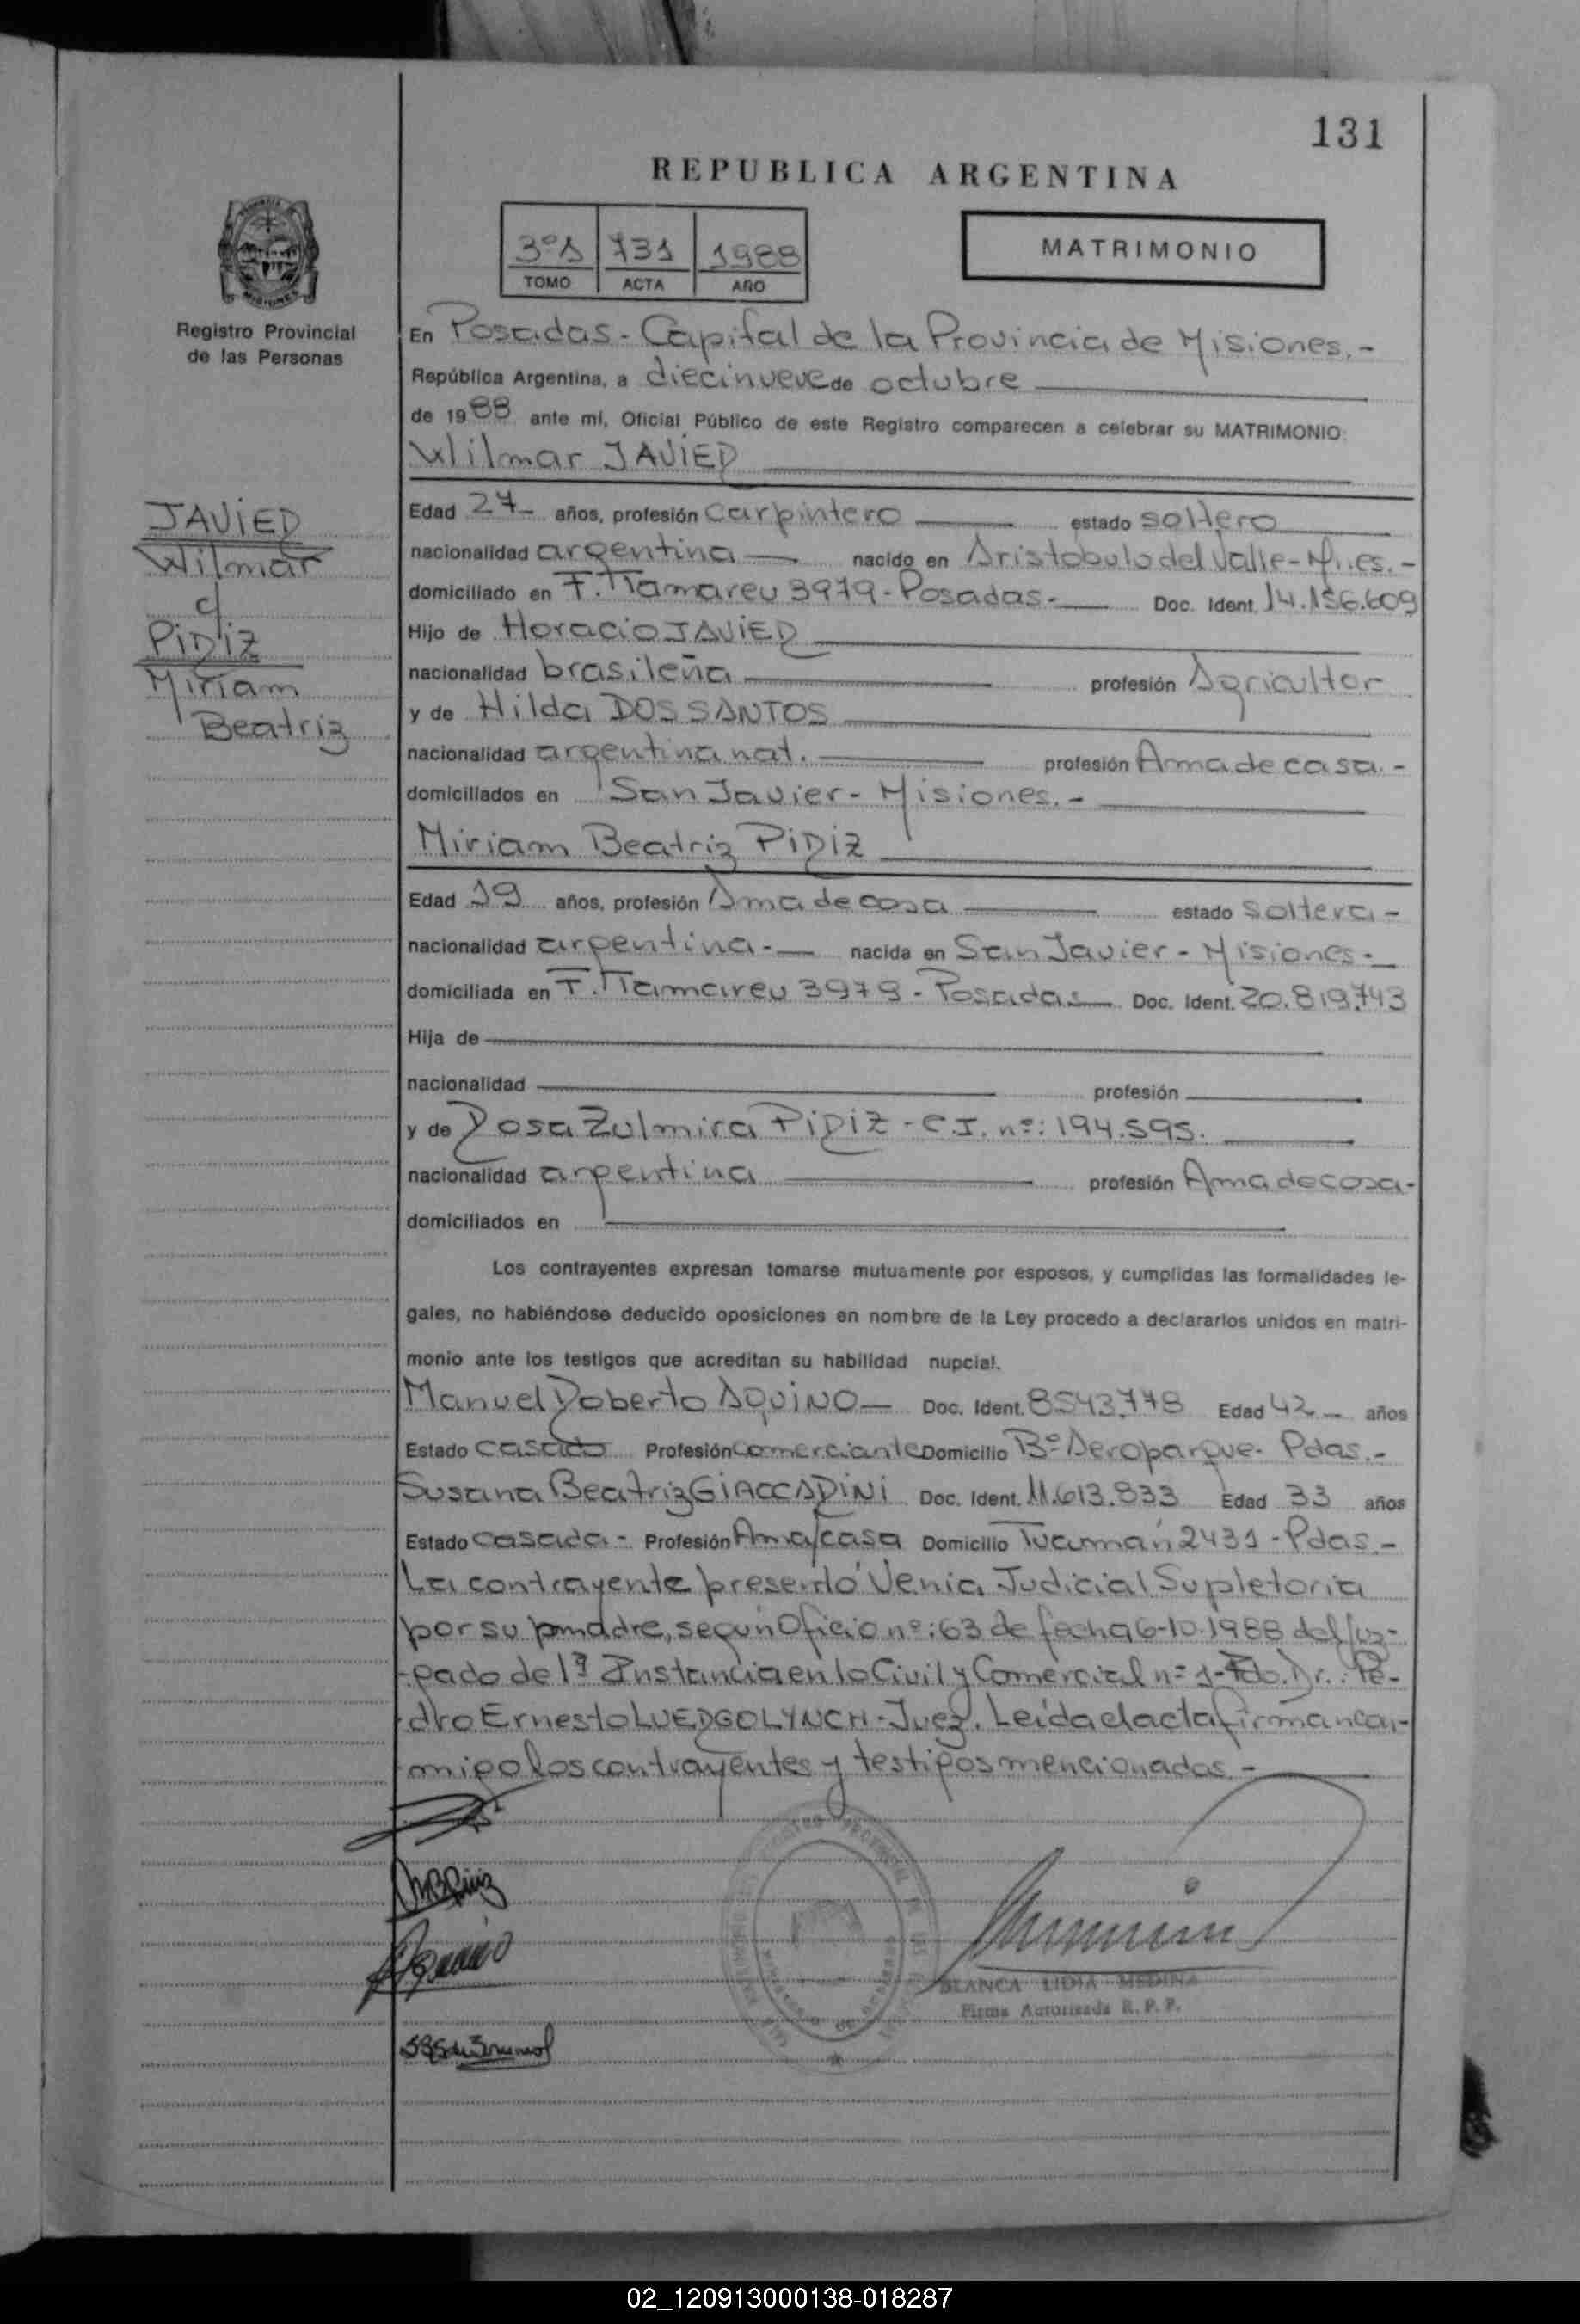 131
REPUBLICA ARGENTINA
3º1 731 1988
TOMO ACTA AÑO
MATRIMONIO
Registro Provincial
de las Personas
En Posadas - Capital de la Provincia de Misiones.-
República Argentina, a diecinueve de octubre
de 1988 ante mí, Oficial Público de este Registro comparecen a celebrar su MATRIMONIO:
Wilmar JAVIER
JAVIER
Wilmar
c/
PIRIZ
Miriam
Beatriz
Edad 27- años, profesión Carpintero estado soltero
nacionalidad argentina nacido en Aristobulo del Valle - Mnes.-
domiciliado en F. Tamareu 3979 - Posadas- Doc. Ident. 14.156.609
Hijo de Horacio JAVIER
nacionalidad brasileña profesión Agricultor
y de Hilda DOS SANTOS
nacionalidad argentina nat. profesión Ama de casa.-
domiciliados en San Javier - Misiones.-
Miriam Beatriz PIRIZ
Edad 19 años, profesión Ama de casa estado soltera-
nacionalidad argentina.- nacida en San Javier - Misiones.-
domiciliada en F. Tamareu 3979 - Posadas Doc. Ident. 20.819.743
Hija de
nacionalidad profesión
y de Rosa Zulmira PIRIZ - C.I. nº: 194.595.
nacionalidad argentina profesión Ama de casa-
domiciliados en
Los contrayentes expresan tomarse mutuamente por esposos, y cumplidas las formalidades le-
gales, no habiéndose deducido oposiciones en nombre de la Ley procedo a declararlos unidos en matri-
monio ante los testigos que acreditan su habilidad nupcial.
Manuel Roberto AQUINO Doc. Ident. 8543.778 Edad 42 años
Estado casado Profesión comerciante Domicilio Bº Aeroparque. Pdas.-
Susana Beatriz GIACCARINI Doc. Ident. 11.613.833 Edad 33 años
Estado casada - Profesión Ama/casa Domicilio Tucumán 2431 - Pdas.-
La contrayente presentó Venia Judicial Supletoria
por su madre, según Oficio nº: 63 de fecha 6-10-1988 del Juz-
gado de 1ª Instancia en lo Civil y Comercial nº 1- Fdo. Dr.: Pe-
dro Ernesto LUERGO LYNCH - Juez. Leída el acta firman con-
migo los contrayentes y testigos mencionados.-
BLANCA LIDIA MEDINA
Firma Autorizada R. P. P.
02_120913000138-018287